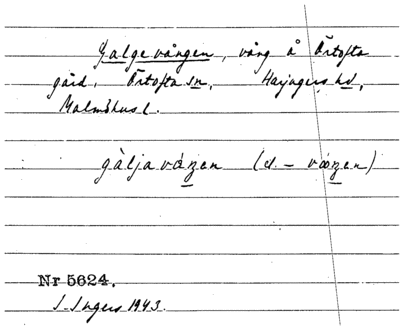 Galgevången, vång å Örtofta
gård, Örtofta sn, Harjagers hd,
Malmöhus l.
gàljavåŋen (el. – vøŋen)
Nr 5624.
I. Ingers 1943.